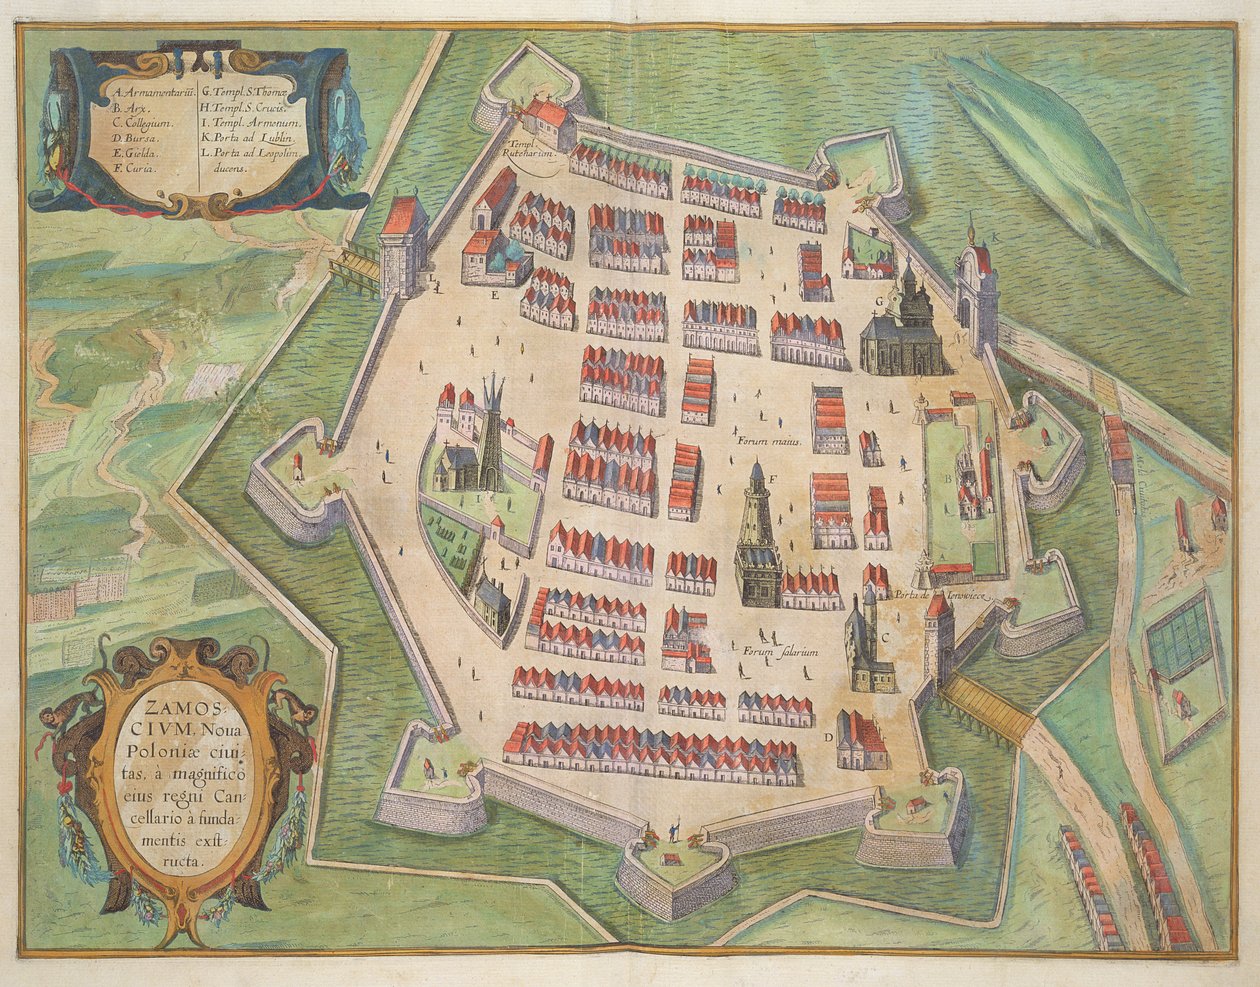 A. Armamentariū.
B. Arx.
C. Collegium.
D. Bursa.
E. Gielda.
F. Curia.
G. Templ. S. Thomæ
H. Templ. S. Crucis.
I. Templ. Armenum.
K. Porta ad Lublin.
L. Porta ad Leopolim
ducens.
Templ.
Rutenarium.
K
E
G
Forum maius.
F
B
A
Porta de
C
Forum salarium
D
ZAMOS-
CIVM, Nova
Poloniæ ciui-
tas, à magnifico
eius regni Can-
cellario à funda-
mentis exst-
ructa.